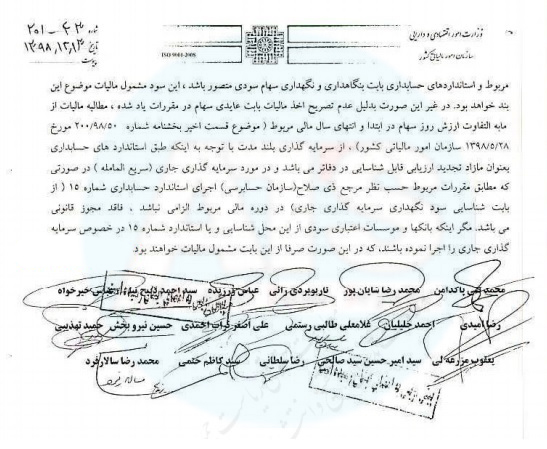 وزارت امور اقتصادی و دارایی
سازمان امور مالیاتی کشور
ISO 9001-2008
شماره ۲۰۱-۴۳
تاریخ ۱۳۹۸,۱۲,۱۴
پیوست
مربوط و استانداردهای حسابداری بابت بنگاهداری و نگهداری سهام سودی متصور باشد ، این سود مشمول مالیات موضوع این
بند خواهد بود. در غیر این صورت بدلیل عدم تصریح اخذ مالیات بابت عایدی سهام در مقررات یاد شده ، مطالبه مالیات از
مابه التفاوت ارزش روز سهام در ابتدا و انتهای سال مالی مربوط ( موضوع قسمت اخیر بخشنامه شماره ۲۰۰/۹۸/۵۰ مورخ
۱۳۹۸/۵/۲۸ سازمان امور مالیاتی کشور) ، از سرمایه گذاری بلند مدت با توجه به اینکه طبق استاندارد های حسابداری
بعنوان مازاد تجدید ارزیابی قابل شناسایی در دفاتر می باشد و در مورد سرمایه گذاری جاری (سریع المامله ) در صورتی
که مطابق مقررات مربوط حسب نظر مرجع ذی صلاح(سازمان حسابرسی) اجرای استاندارد حسابداری شماره ۱۵ ( از
بابت شناسایی سود نگهداری سرمایه گذاری جاری) در دوره مالی مربوط الزامی نباشد ، فاقد مجوز قانونی
می باشد. مگر اینکه بانکها و موسسات اعتباری سودی از این محل شناسایی و یا استاندارد شماره ۱۵ در خصوص سرمایه
گذاری جاری را اجرا نموده باشند، که در این صورت صرفا از این بابت مشمول مالیات خواهند بود.
محمد تقی پاکدامن محمد رضا شایان پور عباس سید احمد خیرخواه
رضا امیدی احمد خلیلیان غلامعلی طالبی رستمی علی اصغر احمدی حسین نیرو بخش حمید تهذیبی
یعقوب مزرعه لی سید امیر حسین سید صالحی رضا سلطانی سید کاظم ختمی محمد رضا سالارفرد